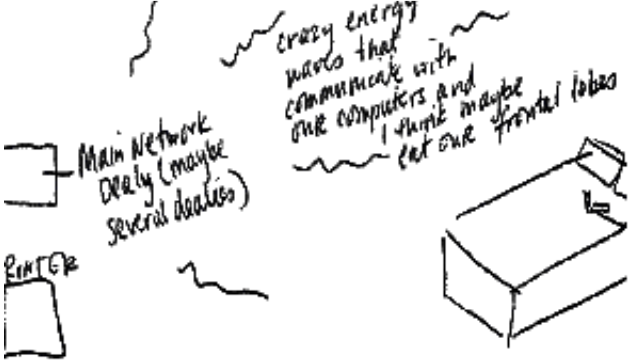 crazy energy
waves that
communicate with
our computers and
I think maybe
eat our frontal lobes
Main Network
Dealy (maybe
several dealies)
RINTER